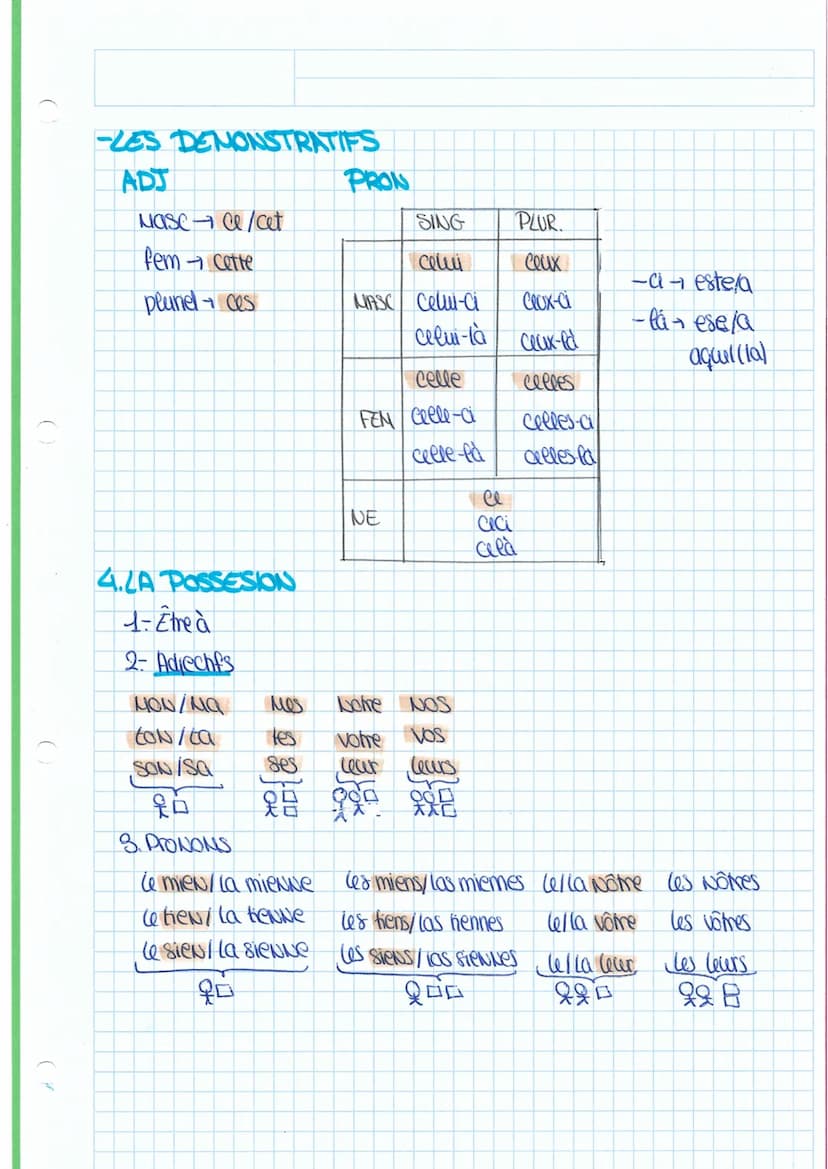 -LES DEMONSTRATIFS
ADJ PRON
MASC → ce/cet
fem → cette
pluriel → ces
SING PLUR.
MASC celui ceux
celui-ci ceux-ci
celui-là ceux-là
FEM celle celles
celle-ci celles-ci
celle-là celles-la
NE ce
ceci
celà
-ci → este/a
-lá → ese/a
aquel(la)
4. LA POSSESION
1- Être à
2- Adjectifs
MON/MA Mes Notre NOS
TON/TA tes votre VOS
SON/SA ses leur leurs
3. PRONONS
le mien/la mienne les miens/las miennes le/la nôtre les nôtres
le tien/la tienne les tiens/las tiennes le/la vôtre les vôtres
le sien/la sienne les siens/las siennes le/la leur les leurs